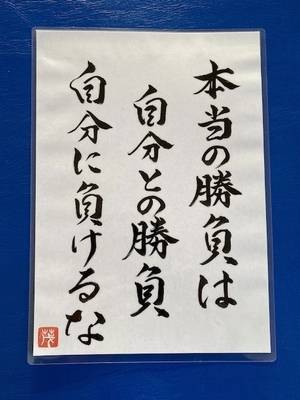 本当の勝負は
自分との勝負
自分に負けるな
茂